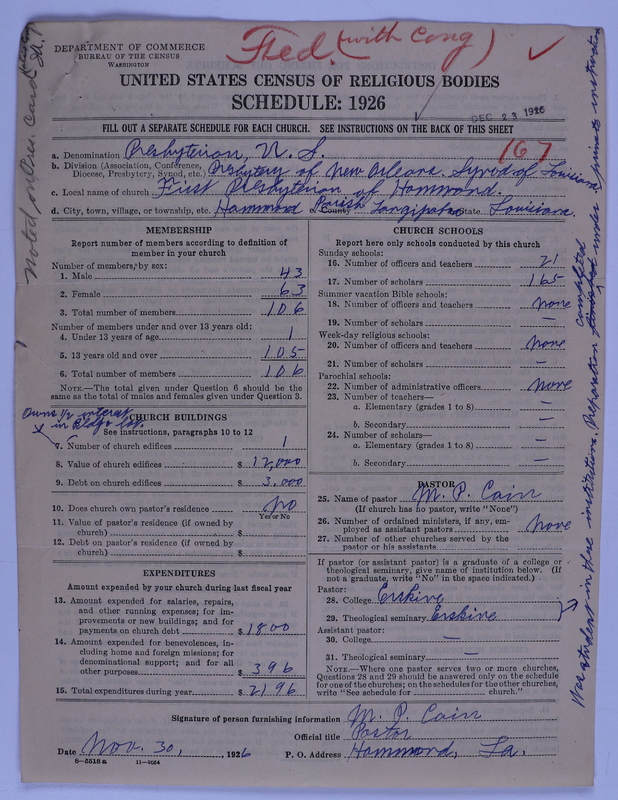 Fed. (with Cong)
DEPARTMENT OF COMMERCE
BUREAU OF THE CENSUS
WASHINGTON
UNITED STATES CENSUS OF RELIGIOUS BODIES
SCHEDULE: 1926
DEC 23 1926
FILL OUT A SEPARATE SCHEDULE FOR EACH CHURCH. SEE INSTRUCTIONS ON THE BACK OF THIS SHEET
167
a. Denomination Presbyterian, U. S.
b. Division (Association, Conference, Diocese, Presbytery, Synod, etc.) Presbytery of New Orleans. Synod of Louisiana
c. Local name of church First Presbyterian of Hammond.
d. City, town, village, or township, etc. Hammond e. County Parish Tangipahoa State Louisiana.
MEMBERSHIP
Report number of members according to definition of member in your church
Number of members, by sex:
1. Male 43
2. Female 63
3. Total number of members 106
Number of members under and over 13 years old:
4. Under 13 years of age 1
5. 13 years old and over 105
6. Total number of members 106
NOTE.—The total given under Question 6 should be the same as the total of males and females given under Question 3.
Owns 1/2 interest in Bldg & lot.
CHURCH BUILDINGS
See instructions, paragraphs 10 to 12
7. Number of church edifices 1
8. Value of church edifices $ 12,000
9. Debt on church edifices $ 3,000
10. Does church own pastor's residence no
Yes or No
11. Value of pastor's residence (if owned by church) $
12. Debt on pastor's residence (if owned by church) $
EXPENDITURES
Amount expended by your church during last fiscal year
13. Amount expended for salaries, repairs, and other running expenses; for improvements or new buildings; and for payments on church debt $ 1800
14. Amount expended for benevolences, including home and foreign missions; for denominational support; and for all other purposes $ 396
15. Total expenditures during year $ 2196
CHURCH SCHOOLS
Report here only schools conducted by this church
Sunday schools:
16. Number of officers and teachers 21
17. Number of scholars 165
Summer vacation Bible schools:
18. Number of officers and teachers none
19. Number of scholars —
Week-day religious schools:
20. Number of officers and teachers none
21. Number of scholars —
Parochial schools:
22. Number of administrative officers none
23. Number of teachers—
a. Elementary (grades 1 to 8) —
b. Secondary —
24. Number of scholars—
a. Elementary (grades 1 to 8) —
b. Secondary —
PASTOR
25. Name of pastor M. P. Cain
(If church has no pastor, write "None")
26. Number of ordained ministers, if any, employed as assistant pastors none
27. Number of other churches served by the pastor or his assistants
If pastor (or assistant pastor) is a graduate of a college or theological seminary, give name of institution below. (If not a graduate, write "No" in the space indicated.)
Pastor:
28. College Erskine
29. Theological seminary Erskine
Assistant pastor:
30. College —
31. Theological seminary —
NOTE.—Where one pastor serves two or more churches, Questions 28 and 29 should be answered only on the schedule for one of the churches; on the schedules for the other churches, write "See schedule for church."
Was student in these institutions. Preparation completed under private instruction
Signature of person furnishing information M. P. Cain
Official title Pastor
Date Nov. 30, 1926 P. O. Address Hammond, La.
8-5518a 11-9054